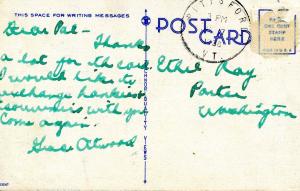 THIS SPACE FOR WRITING MESSAGES
POST CARD
PITTSFORD
1 PM
VT.
PLACE
ONE CENT
STAMP
HERE
Dear Pal-
Thanks
a lot for the card
I would like to
exchange hankies &
souvenirs with you
Come again.
Grace Atwood
Ethel Ray
Porter
Washington